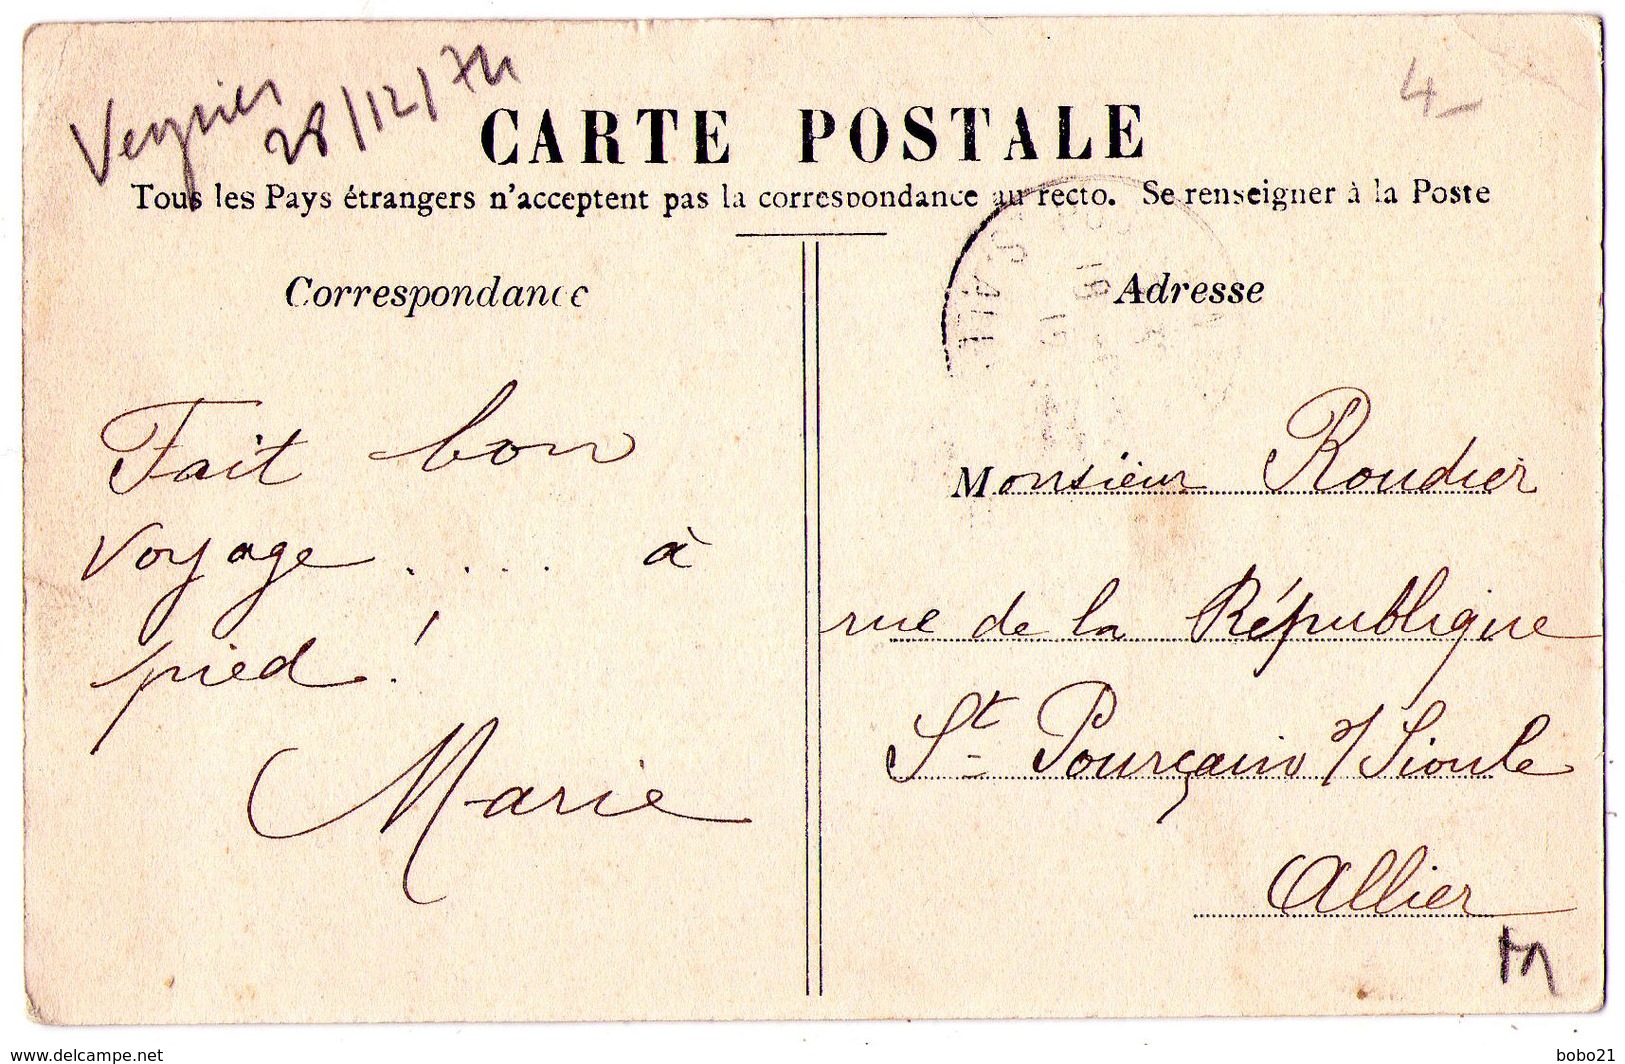 28/12/74
4
CARTE POSTALE
Tous les Pays étrangers n'acceptent pas la correspondance au recto. Se renseigner à la Poste
Correspondance
Fait bon
voyage .... à
pied !
Marie
Adresse
Monsieur Roudier
rue de la République
St Pourçain s/Sioule
Allier
www.delcampe.net
bobo21